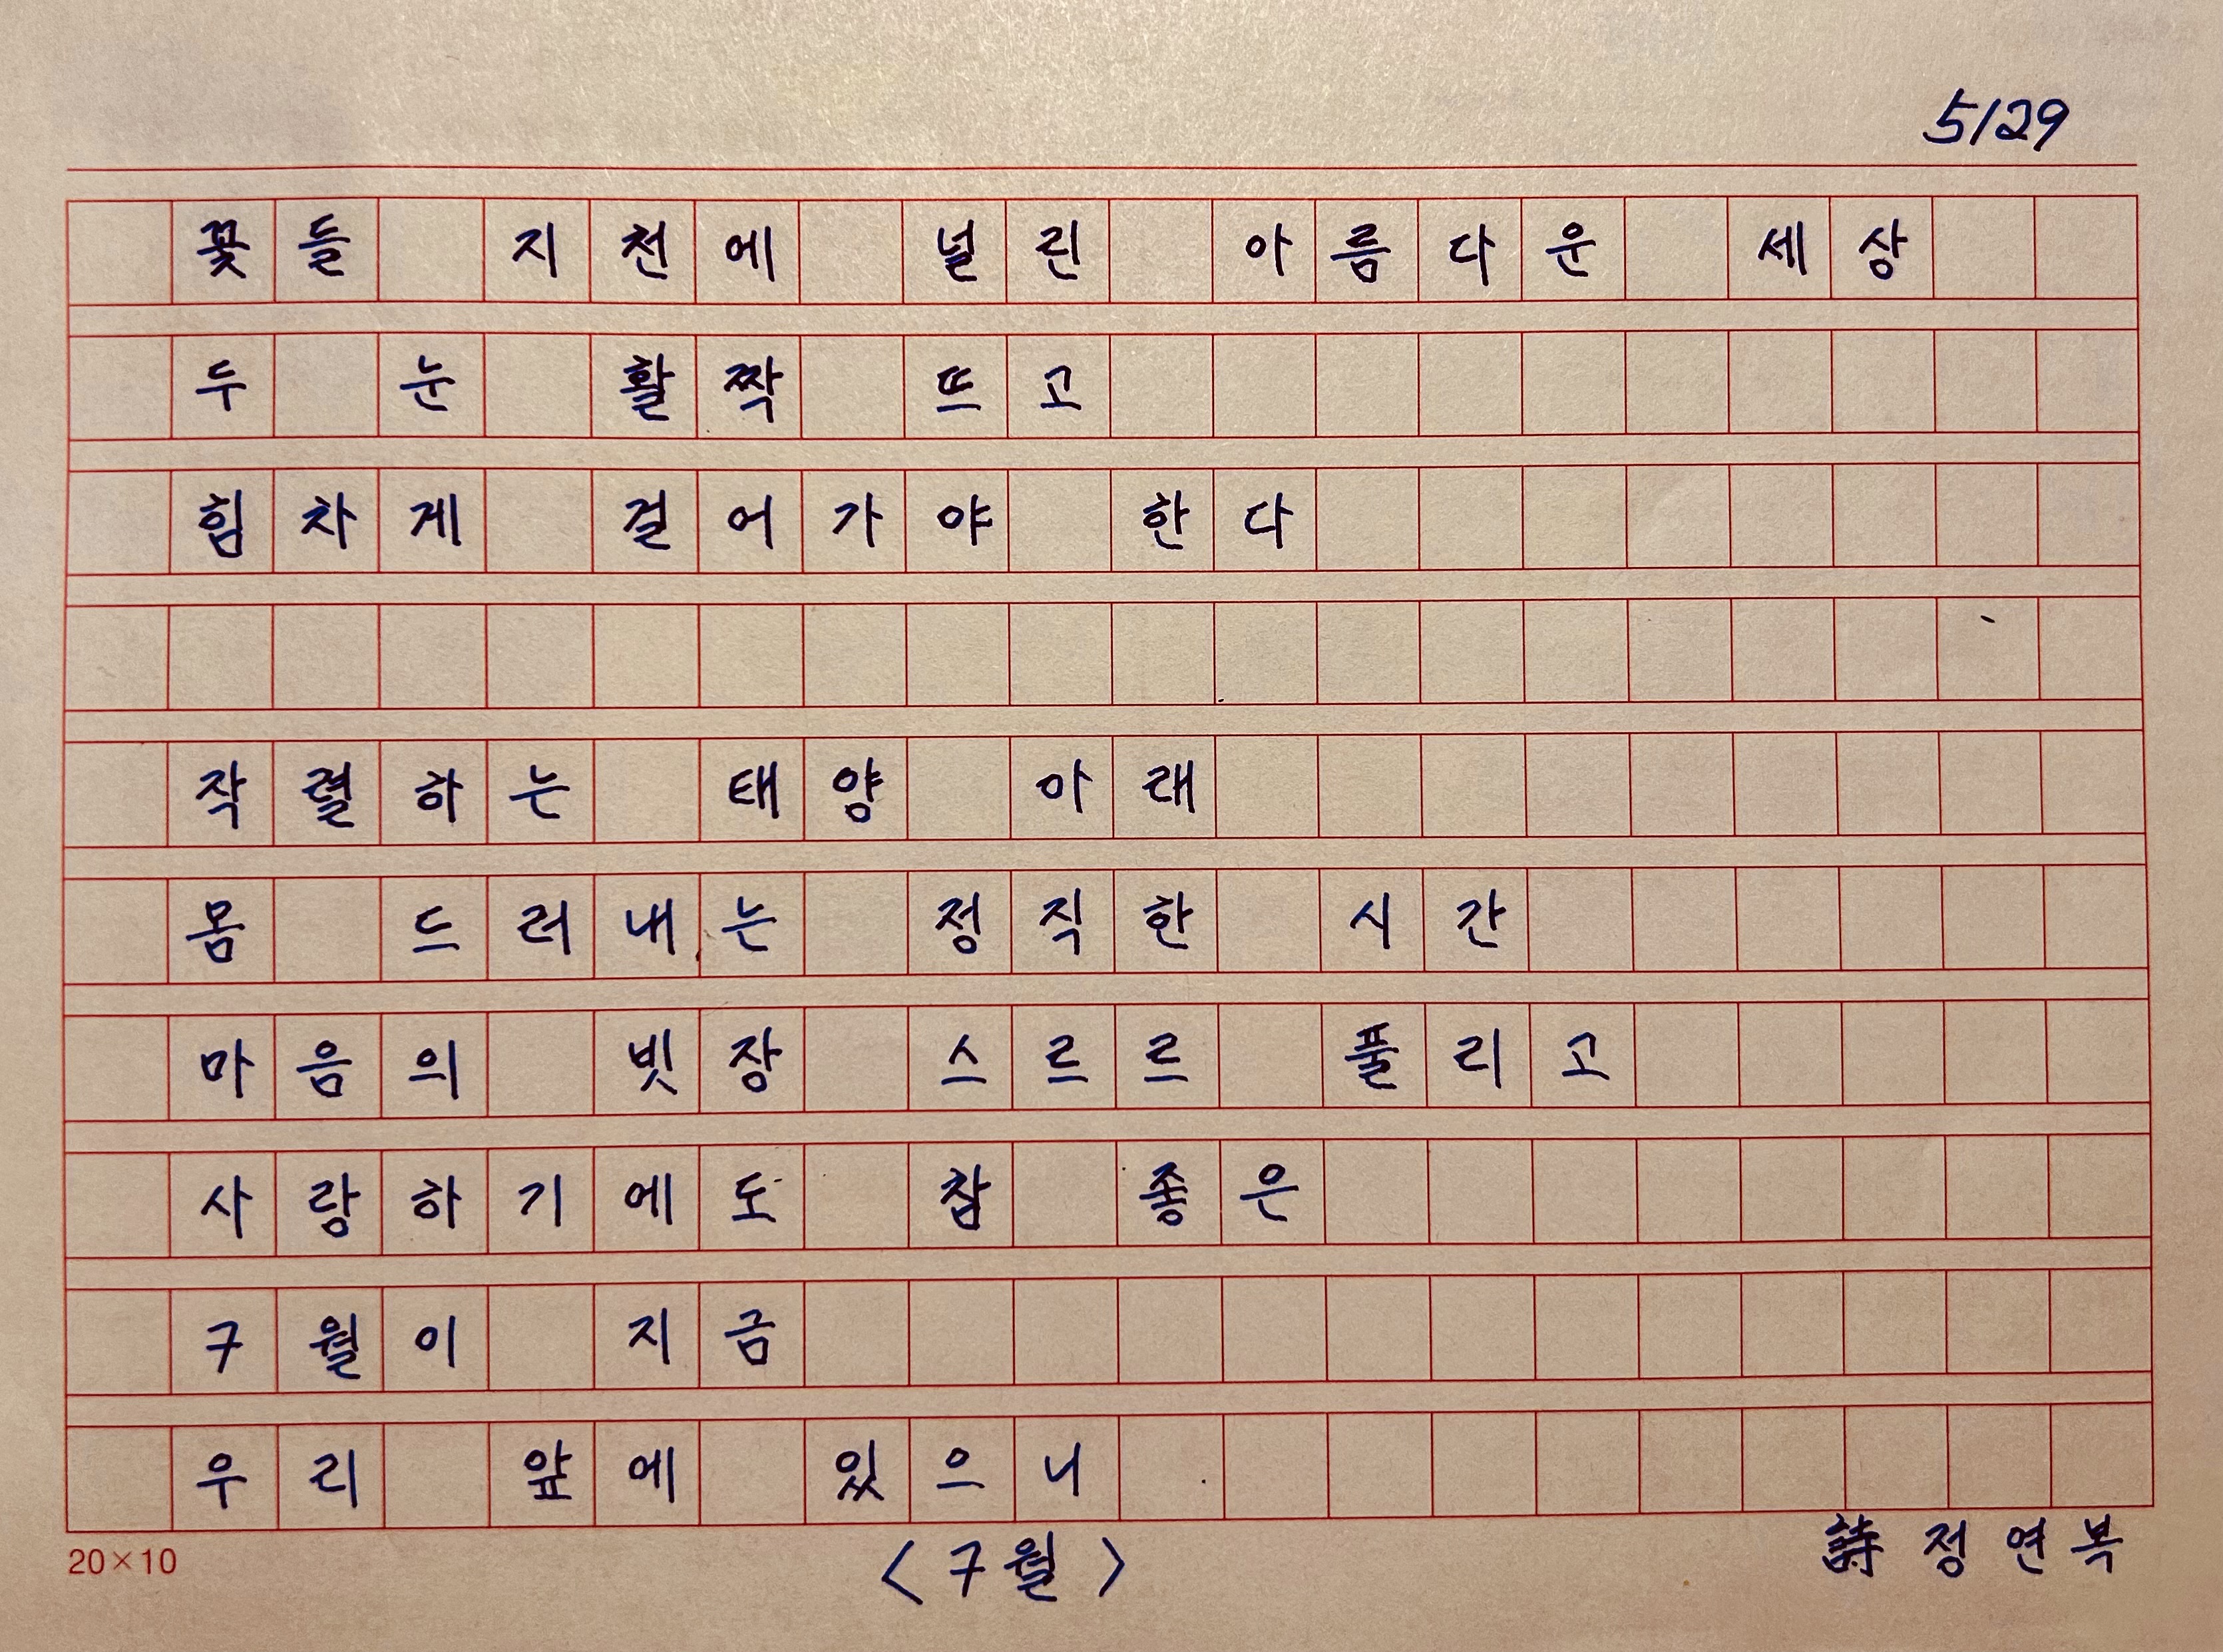 5129
꽃들 지천에 널린 아름다운 세상
두 눈 활짝 뜨고
힘차게 걸어가야 한다
작렬하는 태양 아래
몸 드러내는 정직한 시간
마음의 빗장 스르르 풀리고
사랑하기에도 참 좋은
7월이 지금
우리 앞에 있으니
20×10 <7월> 詩 정연복